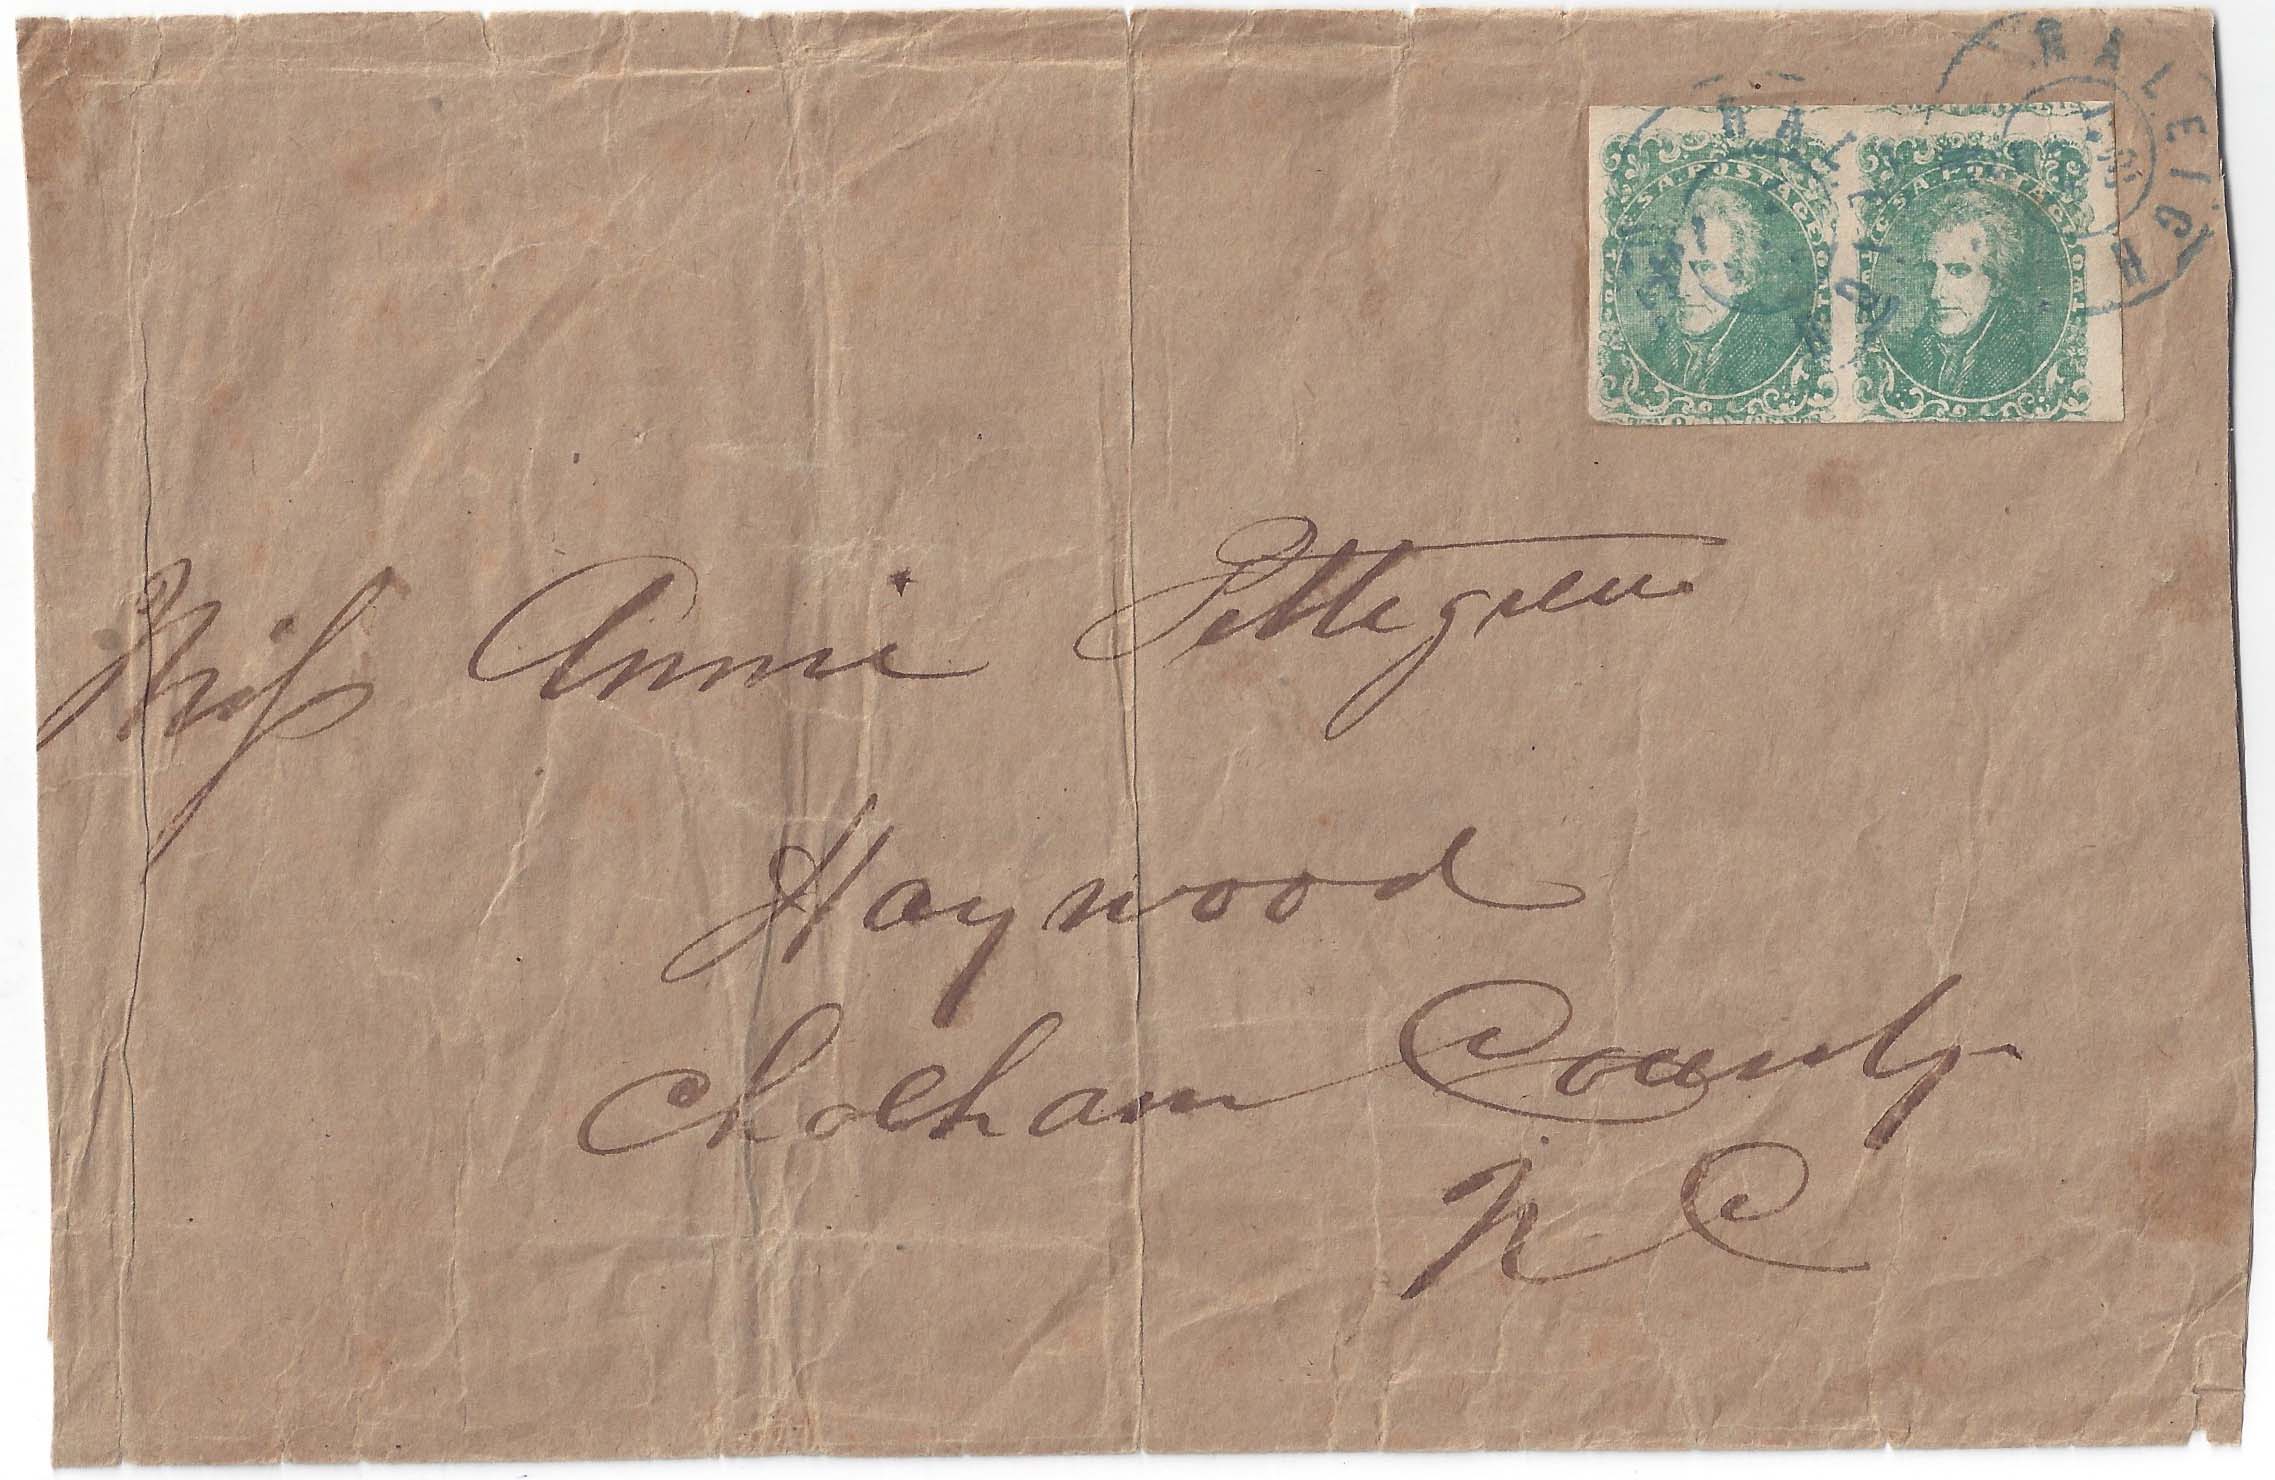 RALEIGH
RALEIGH
C.S.A. POSTAGE
C.S.A. POSTAGE
TWO CENTS
Miss Annie Pettegrew
Haywood
Chatham County
N C